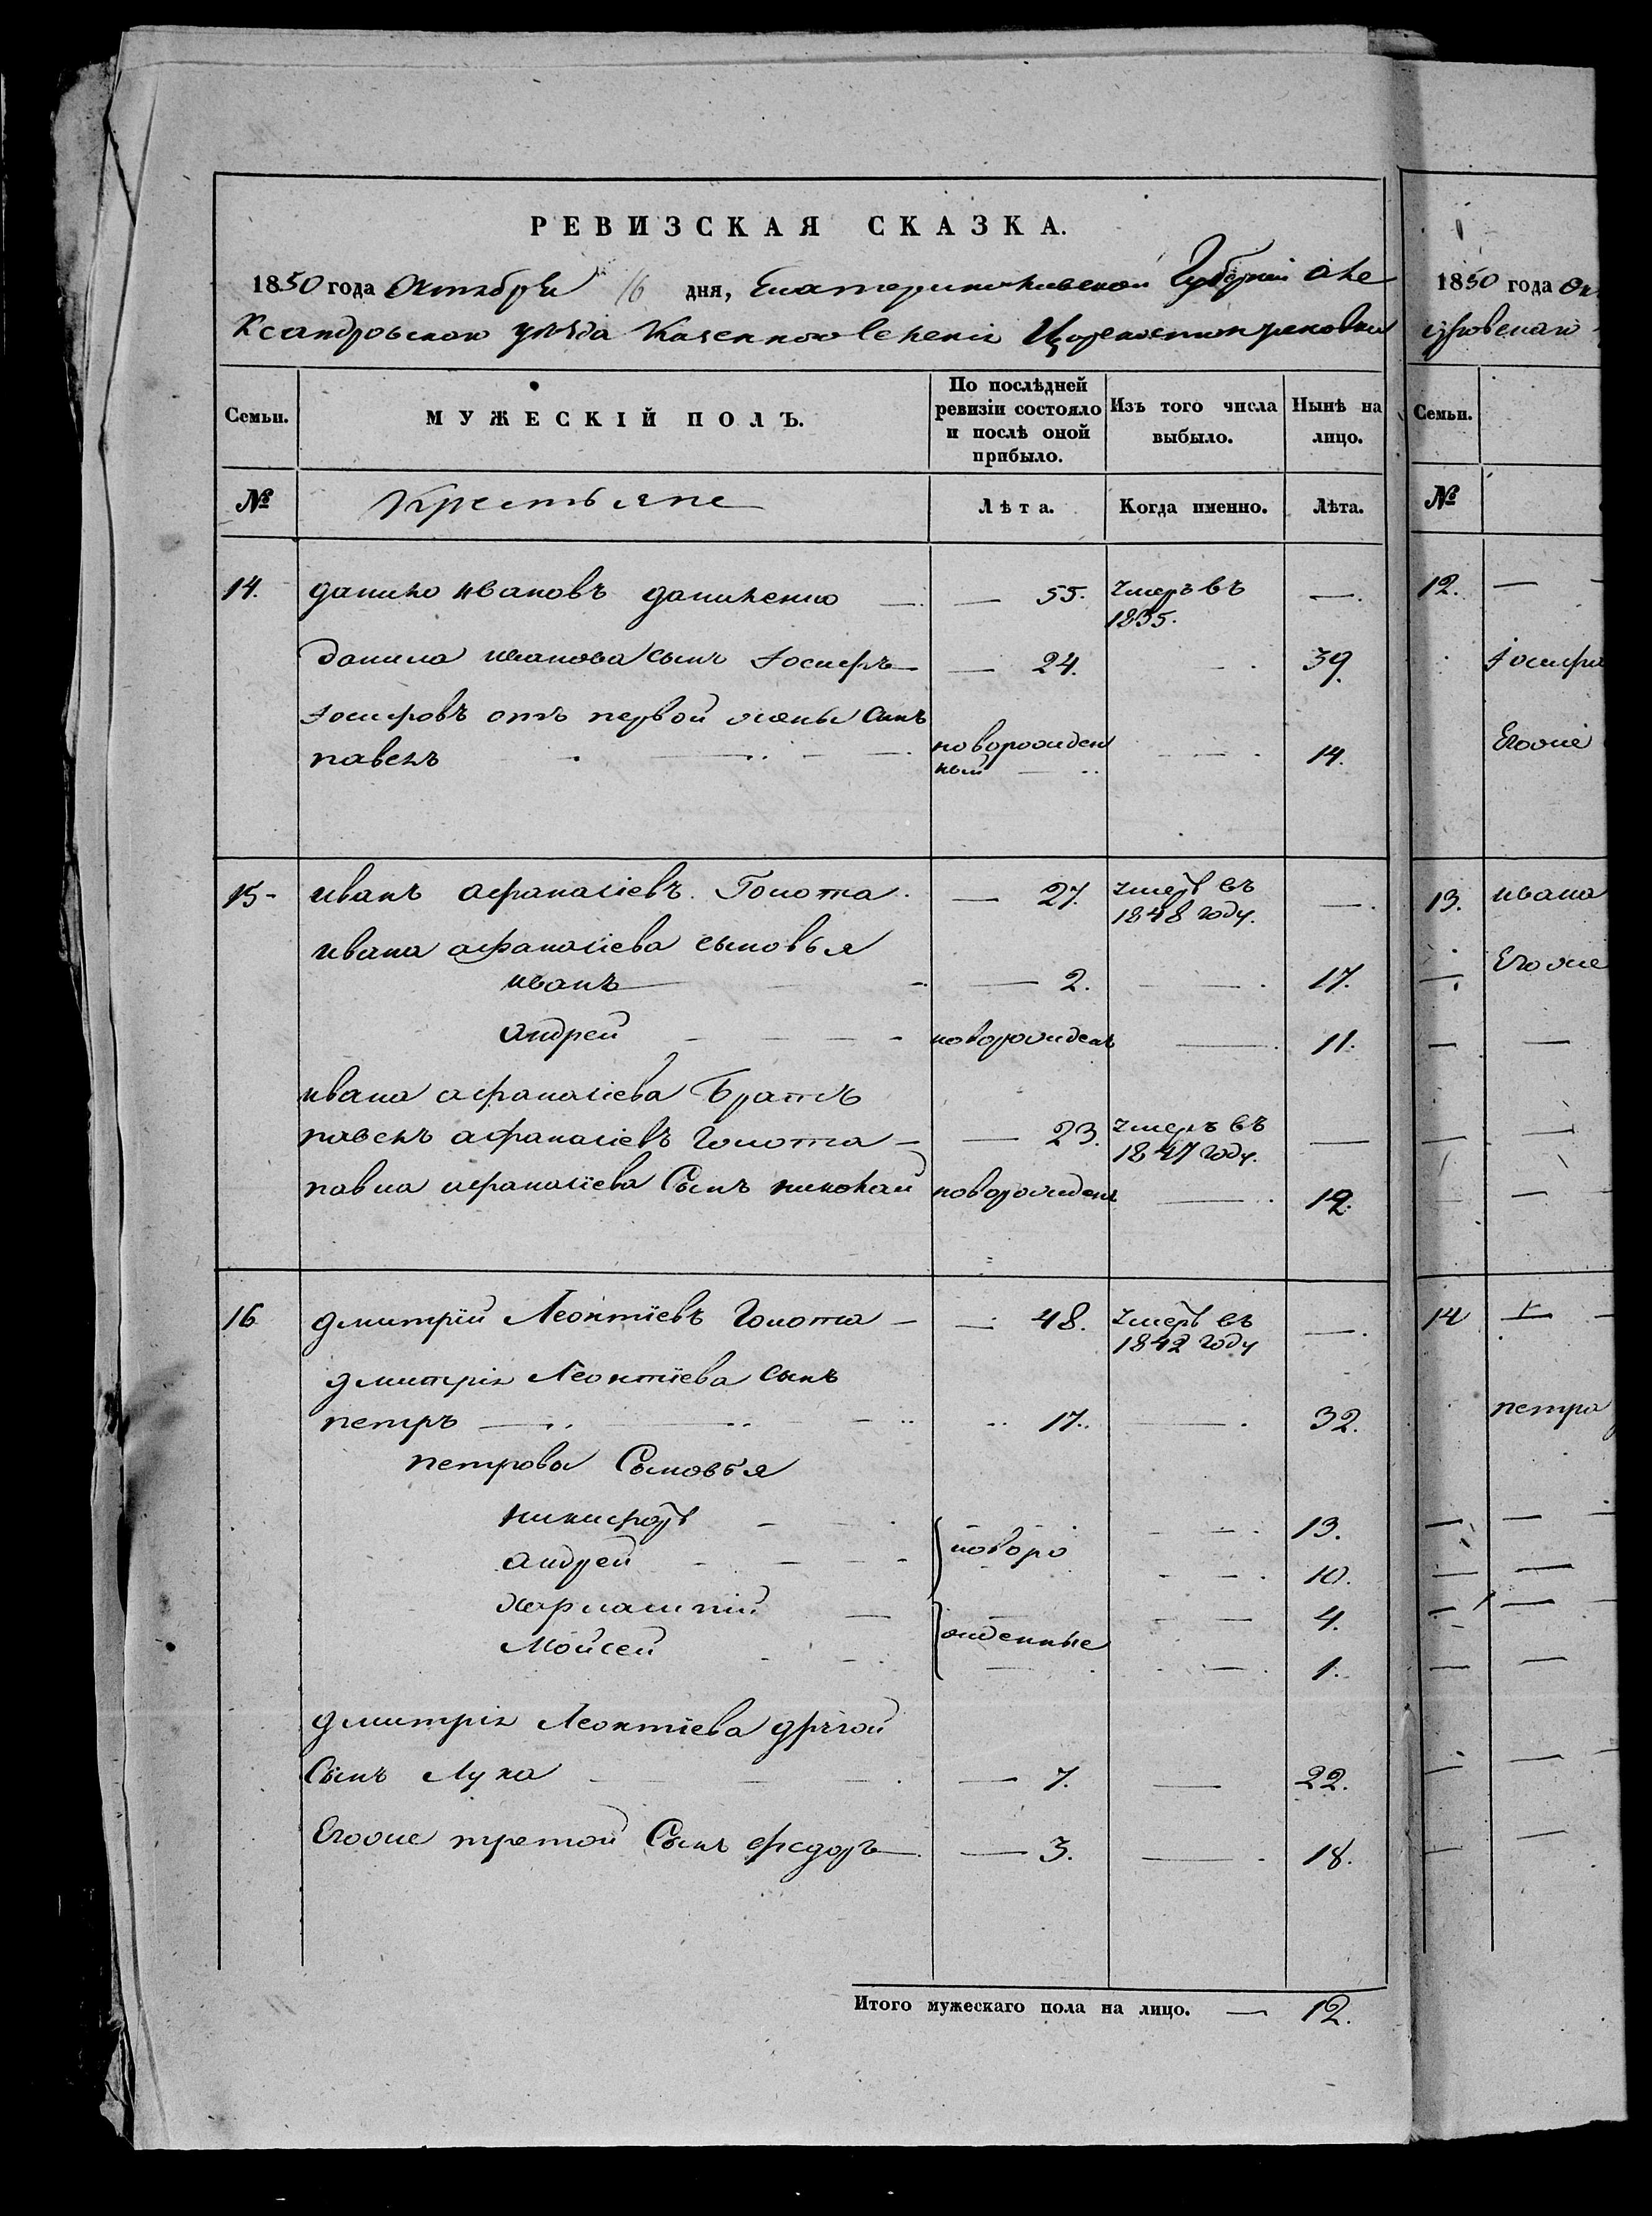 РЕВИЗСКАЯ СКАЗКА.
1850 года Октября 16 дня, Екатеринославской Губерніи Але
ксандровского уѣзда Казенного Селенія Цареконстантиновки
Семьи. МУЖЕСКІЙ ПОЛЪ. По послѣдней ревизіи состояло и послѣ оной прибыло. Изъ того числа выбыло. Нынѣ на лицо.
№ Крестьяне Лѣта. Когда именно. Лѣта.
14. данило ивановъ даниленко — 55. Умеръ въ 1835. —
данила иванова сынъ Іосифъ — 24. — 39.
Іосифовъ отъ первой жены сынъ
павелъ новорожден ный — 14.
15 - иванъ афанасіевъ Голота — 27. умеръ въ 1848 году. —
ивана афанасіева сыновья
иванъ — 2. — 17.
андрей новорожденъ — 11.
ивана афанасіева Братъ
павелъ афанасіевъ голота — 23. умеръ въ 1847 году. —
павла афанасіева Сынъ николай новорожденъ — 12.
16 дмитрій Леонтіевъ голота — 48. Умеръ въ 1842 году —
дмитрія Леонтіева сынъ
петръ — 17. — 32.
петрова Сыновья
никифоръ новоро — 13.
андрей — 10.
Харлампій жденные — 4.
Мойсей — 1.
дмитрія Леонтіева другой
Сынъ Лука — 7. — 22.
Егоже третой Сынъ федоръ — 3. — 18.
Итого мужескаго пола на лицо. — 12.
1850 года Ок
Семьи.
№
12. —
Іосифа
Егоже
13. ивана
Егоже
14 —
петра